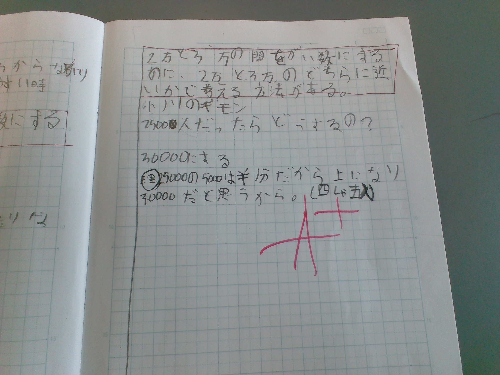 からな
11時
数にする
2万と3万の間をがい数にする
のに、2万と3万のどちらに近
いかで考える方法がある。
小川のギモン
25000人だったらどうするの?
30000にする
25000の5000は半分だから上になり
30000だと思うから。(四しゃ五入)
A+